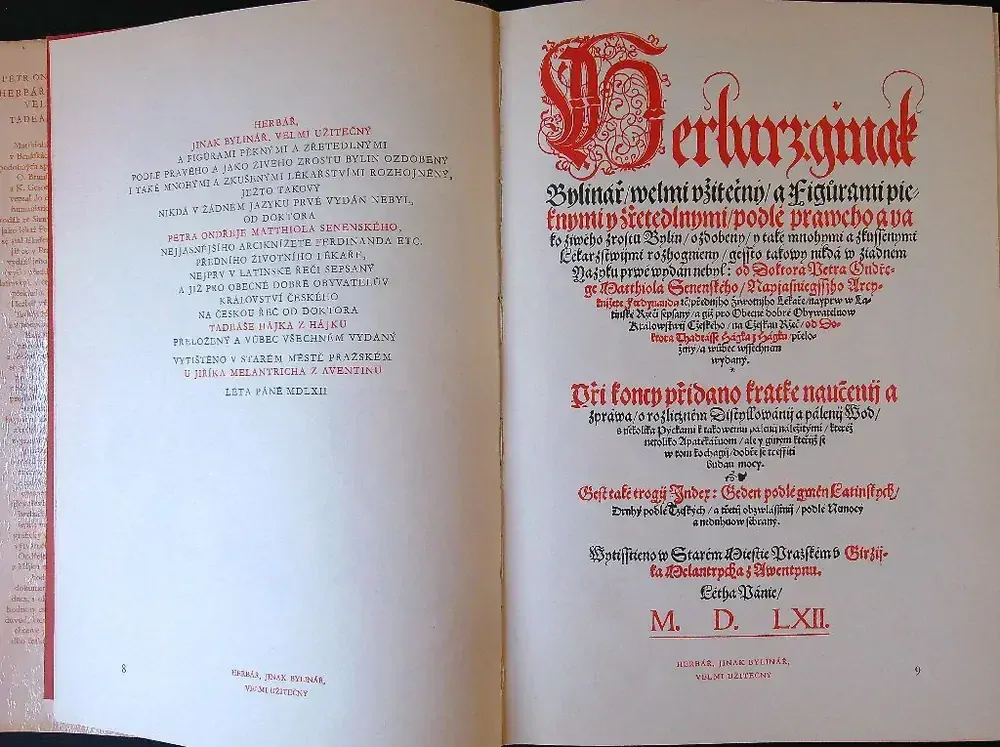 PETR ON
HERBÁŘ
VEL
TADEÁ
HERBÁŘ,
JINAK BYLINÁŘ, VELMI UŽITEČNÝ
A FIGURAMI PĚKNÝMI A ZŘETEDLNÝMI
PODLE PRAVÉHO A JAKO ŽIVÉHO ZROSTU BYLIN OZDOBENÝ
I TAKÉ MNOHÝMI A ZKUŠENÝMI LÉKAŘSTVÍMI ROZHOJNĚNÝ,
JEŽTO TAKOVÝ
NIKDÁ V ŽÁDNÉM JAZYKU PRVÉ VYDÁN NEBYL,
OD DOKTORA
PETRA ONDŘEJE MATTHIOLA SENENSKÉHO,
NEJJASNĚJŠÍHO ARCIKNÍŽETE FERDINANDA ETC.
PŘEDNÍHO ŽIVOTNÍHO LÉKAŘE,
NEJPRV V LATINSKÉ ŘEČI SEPSANÝ
A JIŽ PRO OBECNÉ DOBRÉ OBYVATELŮV
KRÁLOVSTVÍ ČESKÉHO
NA ČESKOU ŘEČ OD DOKTORA
TADEÁŠE HÁJKA Z HÁJKU
PŘELOŽENÝ A VŮBEC VŠECHNĚM VYDANÝ
VYTIŠTĚNO V STARÉM MĚSTĚ PRAŽSKÉM
U JIŘÍKA MELANTRICHA Z AVENTINU
LÉTA PÁNĚ MDLXII
8
HERBÁŘ, JINAK BYLINÁŘ,
VELMI UŽITEČNÝ
Herbarz: ginak
Bylinář / welmi vžitečný / a Figůrami pie-
knymi y zřetedlnymi / podlé praweho a ya
ko žiwého zrostu Bylin / ozdobeny / y také mnohymi a zkussenymi
Lékařzstwijmi rozhognieny / gessto takowy nikdá w žiadném
Yazyku prwé wydán nebyl: od Doktora Petra Ondře-
ge Matthiola Senenského / Nayjasniegssijho Arcy-
knijžete Ferdynanda ꝛc. předniho žiwotnijho Lékaře / nayprw w La-
tinské Ržeči sepsany / a giž pro Obecné dobré Obywatelůw
Kralowstwij Cžeského / na Cžeskau Ržeč / od Do-
ktora Thadeásse Hágka z Hágku / přelo-
ženy / a wůbec wssechněm
wydany.
Při koncy přidano kratke naučenij a
zpráwa / o rozličzném Distyllowánij a pálenij Wod /
s několika Pýckami k takowemu pálenij náležitými / kteréž
netoliko Apatékařuom / ale y giným kteřijž se
w tom kochagij / dobře se trefiti
budau mocy.
Gest také trogij Index: Geden podlé gmén Latinských /
Druhý podlé Cžeských / a třetij obzwlásstnij / podlé Nemocy
a neduhuow sebraný.
Wytisstieno w Starém Miestie Pražském v Giržij-
ka Melantrycha z Awentynu.
Létha Pánie /
M. D. LXII.
HERBÁŘ, JINAK BYLINÁŘ,
VELMI UŽITEČNÝ
9